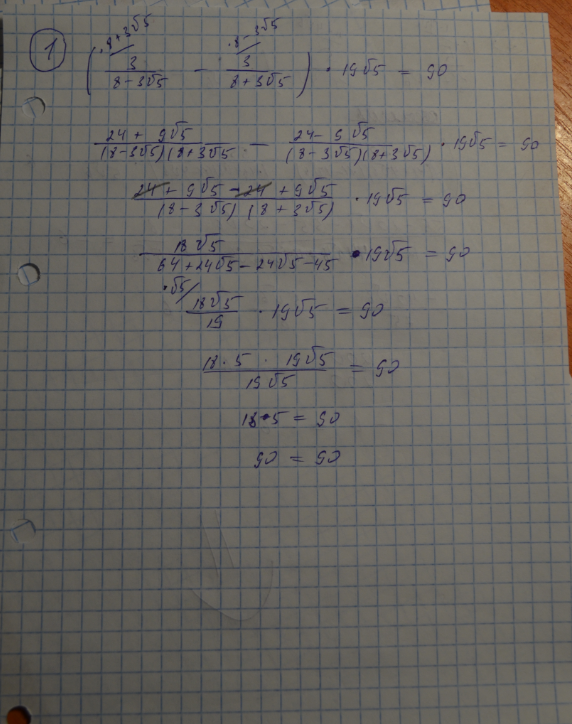 1
·8+3√5 ·8-3√5
(3/(8-3√5) - 3/(8+3√5)) · 19√5 = 90
(24+9√5)/((8-3√5)(8+3√5)) - (24-9√5)/((8-3√5)(8+3√5)) · 19√5 = 90
(24+9√5-24+9√5)/((8-3√5)(8+3√5)) · 19√5 = 90
18√5/(64+24√5-24√5-45) · 19√5 = 90
·√5/ 18√5/19 · 19√5 = 90
(18·5 · 19√5)/(19√5) = 90
18·5 = 90
90 = 90